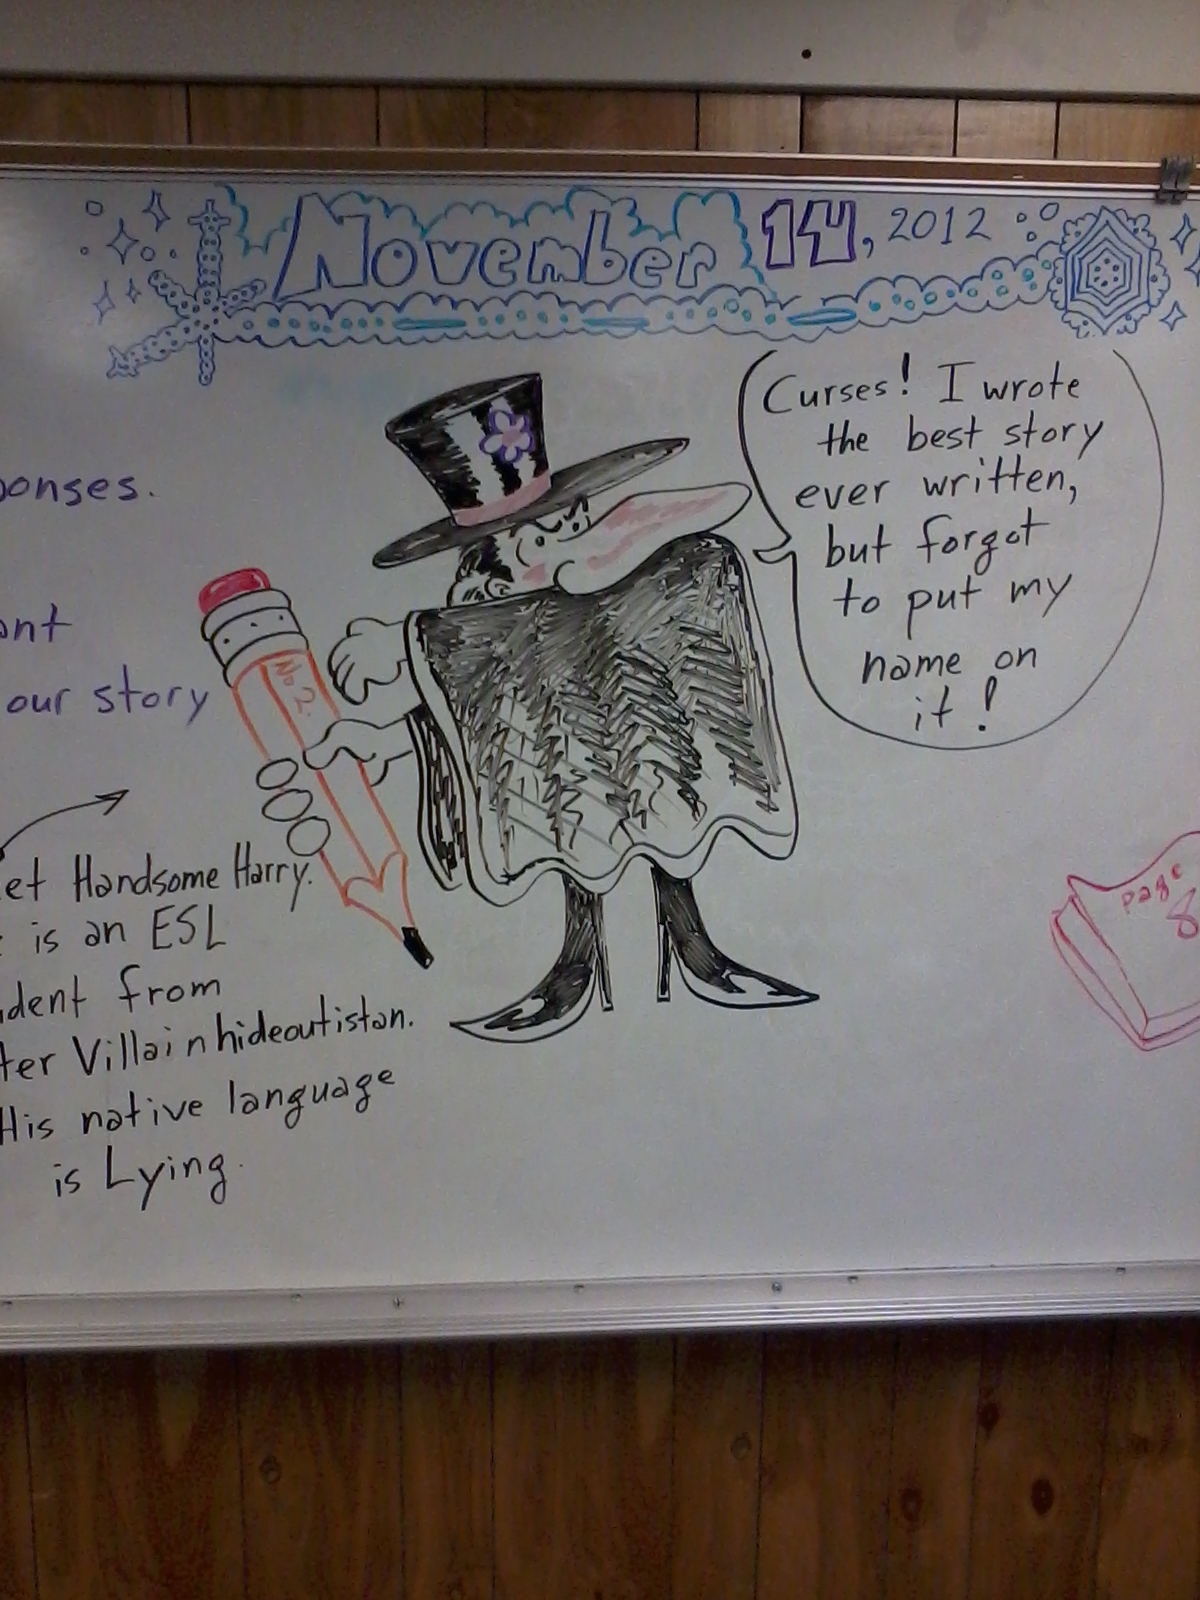 November 14, 2012
Curses! I wrote
the best story
ever written,
but forgot
to put my
name on
it!
onses.
ont
our story
No 2.
et Handsome Harry.
is an ESL
dent from
ter Villainhideoutistan.
His native language
is Lying.
page
8